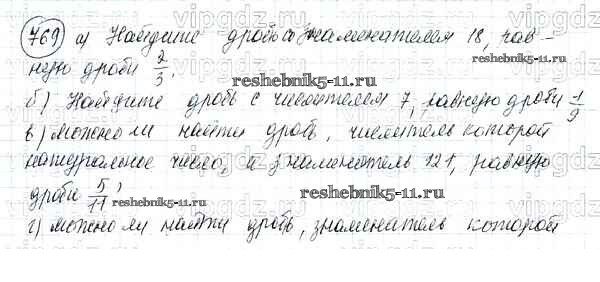 769 а) Найдите дробь со знаменателем 18, рав-
ную дроби 2/3.
reshebnik5-11.ru
б) Найдите дробь с числителем 7, равную дроби 1/9
в) можно ли найти дробь, числитель которой
натуральное число, а знаменатель 121, равную
дроби 5/11,
reshebnik5-11.ru
reshebnik5-11.ru
г) можно ли найти дробь, знаменатель которой